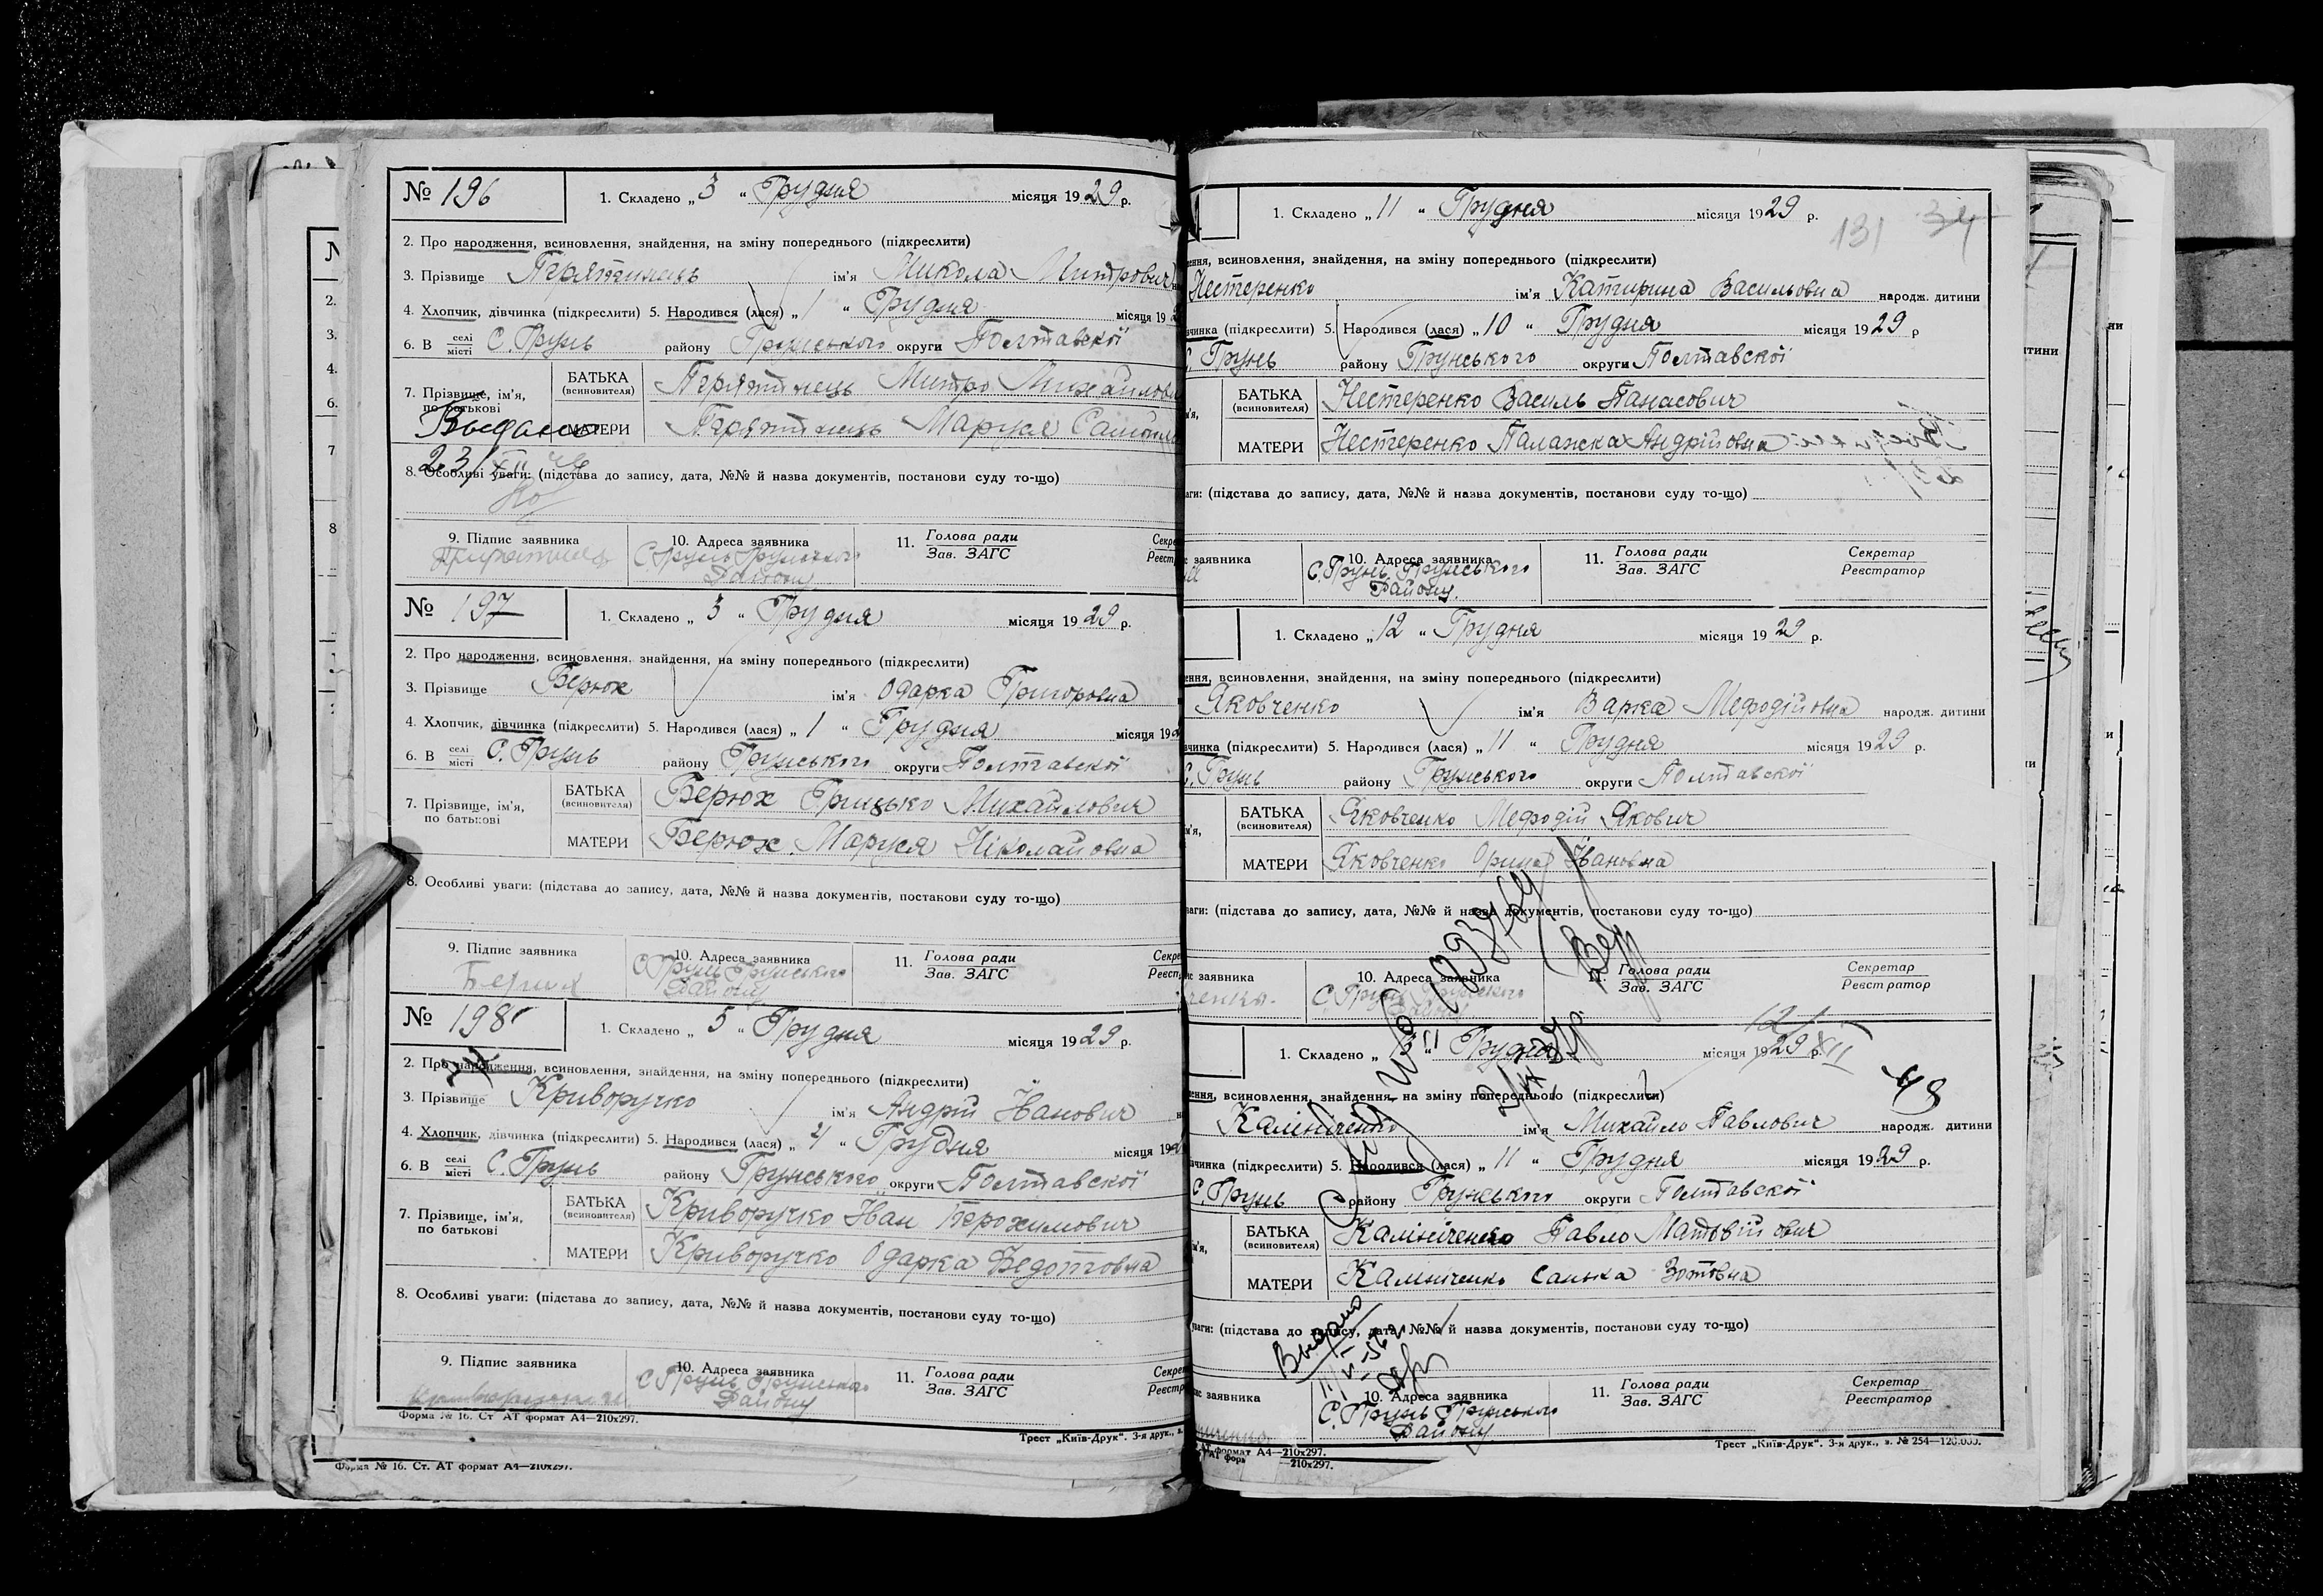 № 196
1. Складено „ 3 “ Грудня місяця 1929 р.
2. Про народження, всиновлення, знайдення, на зміну попереднього (підкреслити)
3. Прізвище Пирятинець ім'я Микола Митрович
4. Хлопчик, дівчинка (підкреслити) 5. Народився (лася) „ 1 “ Грудня місяця 19
6. В селі місті С. Грунь району Грунського округи Полтавської
7. Прізвище, ім'я, по батькові
БАТЬКА (всиновителя) Пирятинець Митро Михайлови
МАТЕРИ Пирятинець Маруся
8. Особливі уваги: (підстава до запису, дата, №№ й назва документів, постанови суду то-що)
9. Підпис заявника
10. Адреса заявника С. Грунь Грунського Району
11. Голова ради Зав. ЗАГС
№ 197
1. Складено „ 3 “ Грудня місяця 1929 р.
2. Про народження, всиновлення, знайдення, на зміну попереднього (підкреслити)
3. Прізвище Берюх ім'я Одарка Григоровна
4. Хлопчик, дівчинка (підкреслити) 5. Народився (лася) „ 1 “ Грудня місяця 19
6. В селі місті С. Грунь району Грунського округи Полтавської
7. Прізвище, ім'я, по батькові
БАТЬКА (всиновителя) Берюх Грицько Михайлович
МАТЕРИ Берюх Маруся Ніколайовна
8. Особливі уваги: (підстава до запису, дата, №№ й назва документів, постакови суду то-що)
9. Підпис заявника
10. Адреса заявника С Грунь Грунського Району
11. Голова ради Зав. ЗАГС
№ 198
1. Складено „ 5 “ Грудня місяця 1929 р.
2. Про народження, всиновлення, знайдення, на зміну попереднього (підкреслити)
3. Прізвище Криворучко ім'я Андрій Іванович
4. Хлопчик, дівчинка (підкреслити) 5. Народився (лася) „ 4 “ Грудня місяця 19
6. В селі місті С. Грунь району Грунського округи Полтавської
7. Прізвище, ім'я, по батькові
БАТЬКА (всиновителя) Криворучко Іван
МАТЕРИ Криворучко Одарка Федотовна
8. Особливі уваги: (підстава до запису, дата, №№ й назва документів, постанови суду то-що)
9. Підпис заявника
10. Адреса заявника С Грунь Грунського Району
11. Голова ради Зав. ЗАГС
Форма № 16. Ст АТ формат А4—210х297.
Трест „Київ-Друк“. 3-я друк.,
Форма № 16. Ст. АТ формат А4—210х297.
1. Складено „ 11 “ Грудня місяця 1929 р.
131 34
всиновлення, знайдення, на зміну попереднього (підкреслити)
Нестеренко ім'я Катирина Васильовна народж. дитини
(підкреслити) 5. Народився (лася) „ 10 “ Грудня місяця 1929 р
С. Грунь району Грунського округи Полтавської
БАТЬКА (всиновителя) Нестеренко Василь Панасович
МАТЕРИ Нестеренко Палажка Андрійовна
(підстава до запису, дата, №№ й назва документів, постанови суду то-що)
заявника
10. Адреса заявника С. Грунь Грунського Району.
11. Голова ради Зав. ЗАГС
Секретар Реєстратор
1. Складено „ 12 “ Грудня місяця 1929 р.
всиновлення, знайдення, на зміну попереднього (підкреслити)
Яковченко ім'я Варка Мефодійовна народж. дитини
(підкреслити) 5. Народився (лася) „ 11 “ Грудня місяця 1929 р.
С. Грунь району Грунського округи Полтавської
БАТЬКА (всиновителя) Яковченко Мефодій Якович
МАТЕРИ Яковченко Орина Івановна
(підстава до запису, дата, №№ й назва документів, постакови суду то-що)
заявника
10. Адреса заявника С Грунь Грунського
11. Голова ради Зав. ЗАГС
Секретар Реєстратор
1. Складено „ “ Грудня місяця 1929 р.
всиновлення, знайдення, на зміну попереднього (підкреслити)
Калініченко ім'я Михайло Павлович народж. дитини
(підкреслити) 5. Народився (лася) „ 11 “ Грудня місяця 1929 р.
С. Грунь району Грунського округи Полтавської
БАТЬКА (всиновителя) Калініченко Павло Матвійович
МАТЕРИ Калініченко Санька Зотовна
(підстава до запису, дата, №№ й назва документів, постанови суду то-що)
Выдано
заявника
10. Адреса заявника С. Грунь Грунського Району
11. Голова ради Зав. ЗАГС
Секретар Реєстратор
АТ формат А4—210х297.
Трест „Київ-Друк“. 3-я друк., з. № 254—120.000.